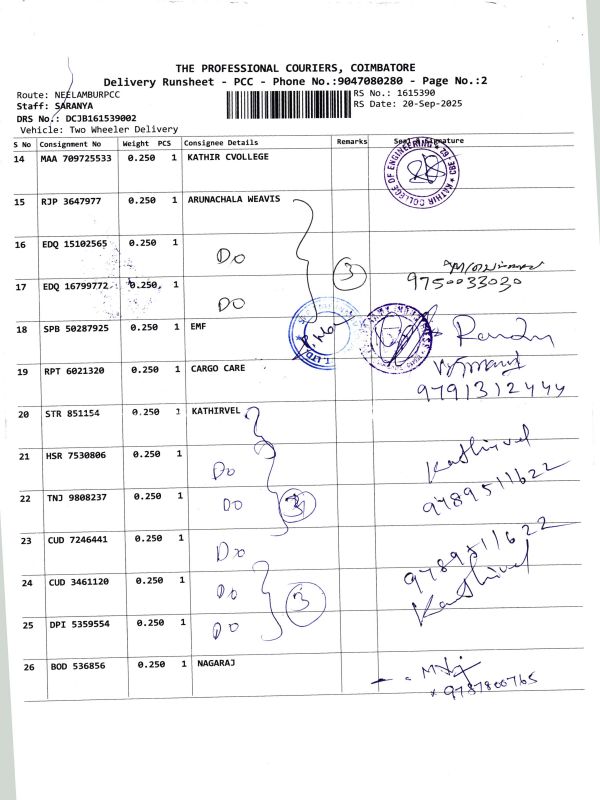 THE PROFESSIONAL COURIERS, COIMBATORE
Delivery Runsheet - PCC - Phone No.:9047080280 - Page No.:2
Route: NEELAMBURPCC RS No.: 1615390
Staff: SARANYA RS Date: 20-Sep-2025
DRS No.: DCJB161539002
Vehicle: Two Wheeler Delivery
S No Consignment No Weight PCS Consignee Details Remarks Seal & Signature
14 MAA 709725533 0.250 1 KATHIR CVOLLEGE
KATHIR COLLEGE OF ENGINEERING
15 RJP 3647977 0.250 1 ARUNACHALA WEAVIS
16 EDQ 15102565 0.250 1 Do
3
9750033030
17 EDQ 16799772 0.250 1 DO
18 SPB 50287925 0.250 1 EMF
19 RPT 6021320 0.250 1 CARGO CARE
9791312444
20 STR 851154 0.250 1 KATHIRVEL
21 HSR 7530806 0.250 1 Do
Kathirvel
22 TNJ 9808237 0.250 1 DO
9789511622
23 CUD 7246441 0.250 1 Do
9789511622
24 CUD 3461120 0.250 1 Do
3
Kathirvel
25 DPI 5359554 0.250 1 DO
26 BOD 536856 0.250 1 NAGARAJ
9787800765